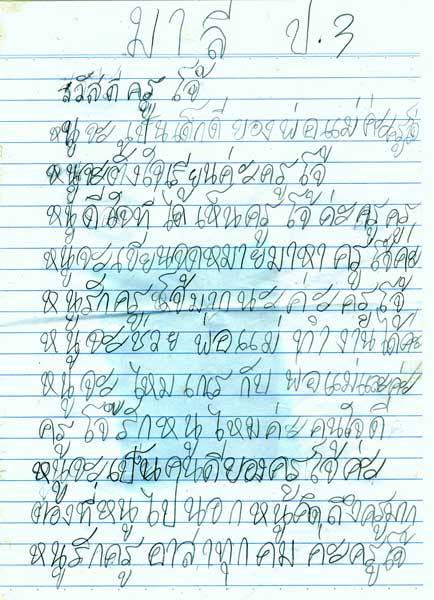 มาลี ป.3
สวัสดี ครู โจ้
หนูจะ เป็นเด็กดี ของพ่อแม่ค่ะครูโจ้
หนูจะตั้งใจเรียนค่ะครู โจ้
หนู ดีใจที่ ได้เห็นครู โจ้ค่ะครู
หนูจะเขียนจดหมายมาหา ครู โจ้ค่ะ
หนูรักครู โจ้มากนะ ค่ะ ครู โจ้
หนูจะช่วย พ่อแม่ ทำ งาน ได้ค่ะ
หนูจะ ไหมเกเร กับ พ่อแม่
ครู โจ้ รักหนู ไหมค่ะ คนใจดี
หนูจะ เป็นคนดีของครู โจ้ ค่ะ
ตองที่หนู ไป นอก หนูคิดถึงครูมาก
หนูรักครู อาสาทุก คน คะครูโจ้